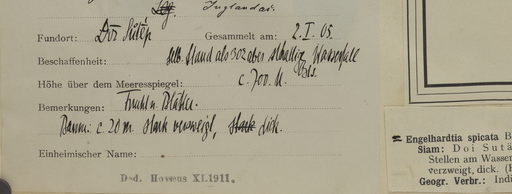 Leg. Juglandac.
Fundort: Doi Sutäp Gesammelt am: 2. I. 05.
Beschaffenheit: selb. Stand als 302 aber schattig Wasserfall
Höhe über dem Meeresspiegel: c. 700 M.
Bemerkungen: Frucht u. Blätter.
Baum: c. 20 m. stark verzweigt, stark dick.
Einheimischer Name:
Ded. Hosseus XI.1911.
= Engelhardtia spicata B
Siam: Doi Sutä
Stellen am Wasser
verzweigt, dick. (
Geogr. Verbr.: Indi